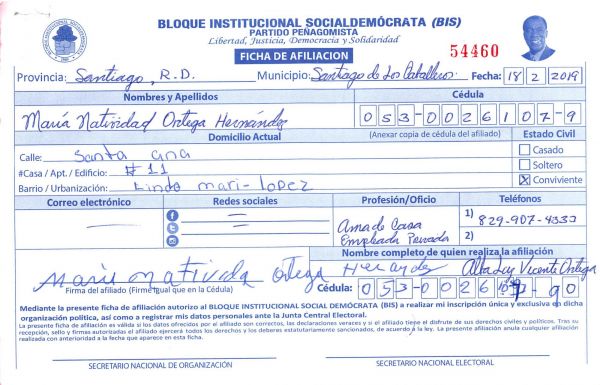 BLOQUE INSTITUCIONAL SOCIALDEMÓCRATA (BIS)
PARTIDO PEÑAGOMISTA
Libertad, Justicia, Democracia y Solidaridad
FICHA DE AFILIACION
54460
Provincia: Santiago, R.D. Municipio: Santiago de Los Caballeros. Fecha: 18 2 2019
Nombres y Apellidos Cédula
María Natividad Ortega Hernández 053-0026107-9
Domicilio Actual (Anexar copia de cédula del afiliado) Estado Civil
Calle: Santa ana Casado
#Casa / Apt. / Edificio: # 11 Soltero
Barrio / Urbanización: Lindo mari-Lopez X Conviviente
Correo electrónico Redes sociales Profesión/Oficio Teléfonos
Ama de Casa 1) 829-907-4333
Empleada Privada 2)
Nombre completo de quien realiza la afiliación
Maria nativida Ortega Hernandez Alta Luz Vicente Ortega
Firma del afiliado (Firme igual que en la Cédula) Cédula: 053-0026
Mediante la presente ficha de afiliación autorizo al BLOQUE INSTITUCIONAL SOCIAL DEMÓCRATA (BIS) a realizar mi inscripción única y exclusiva en dicha
organización política, así como a registrar mis datos personales ante la Junta Central Electoral.
La presente ficha de afiliación es válida si los datos ofrecidos por el afiliado son correctos, las declaraciones veraces y si el afiliado tiene el disfrute de sus derechos civiles y políticos. Tras su
recepción, sello y firmas autorizadas el afiliado ejercerá todos los derechos y los deberes estatutariamente sancionados, de acuerdo a la ley. La presente afiliación anula cualquier afiliación
realizada con anterioridad a la fecha que aparece en esta ficha.
SECRETARIO NACIONAL DE ORGANIZACIÓN SECRETARIO NACIONAL ELECTORAL